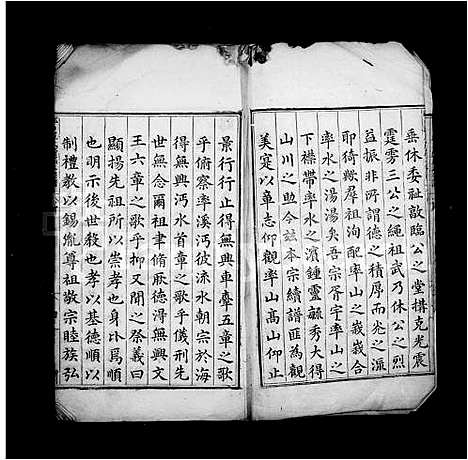 垂休委祉敔臨公之堂搆克光震
霆雱三公之繩祖武乃休公之烈
益振非所謂德之積厚而兆之遠
耶猗歟羣祖洵配率山之峩峩合
率水之湯湯矣吾宗胥宇率山之
下襟帶率水之濱鍾靈毓秀大得
山川之助今玆本宗續譜匪為觀
美寔以車志仰觀率山髙山仰止
景行行止得無興車舝五章之歌
乎俯察率溪沔彼流水朝宗於海
得無興沔水首章之歌乎儀刑先
世無念爾祖聿脩厥德得無興文
王六章之歌乎抑又聞之祭義曰
顯揚先祖所以崇孝也身比焉順
也明示後世教也孝以基德順以
制禮教以錫胤尊祖敬宗睦族弘